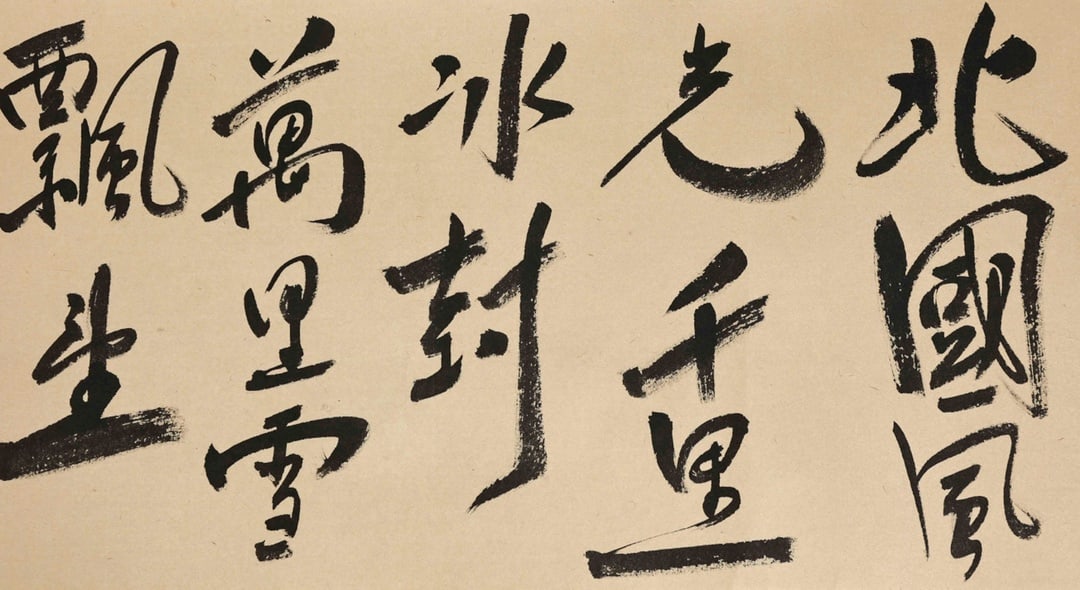 北國風
光千里
冰封
萬里雪
飄望